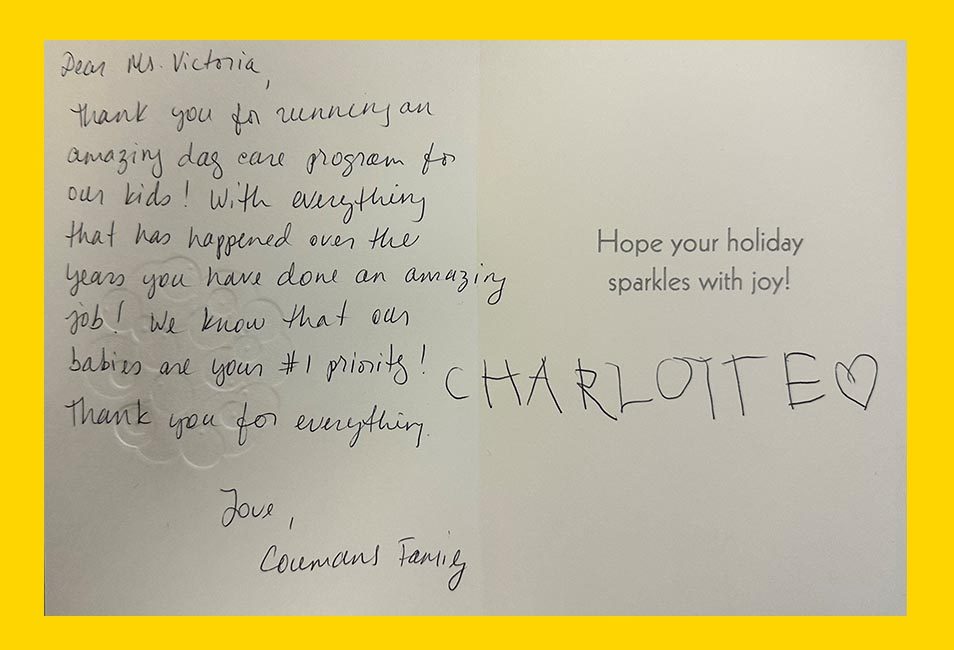 Dear Ms. Victoria,
Thank you for running an
amazing day care program for
our kids! With everything
that has happened over the
years you have done an amazing
job! We know that our
babies are your #1 priority!
Thank you for everything.
Love,
Coumans Family
Hope your holiday
sparkles with joy!
CHARLOTTE♡